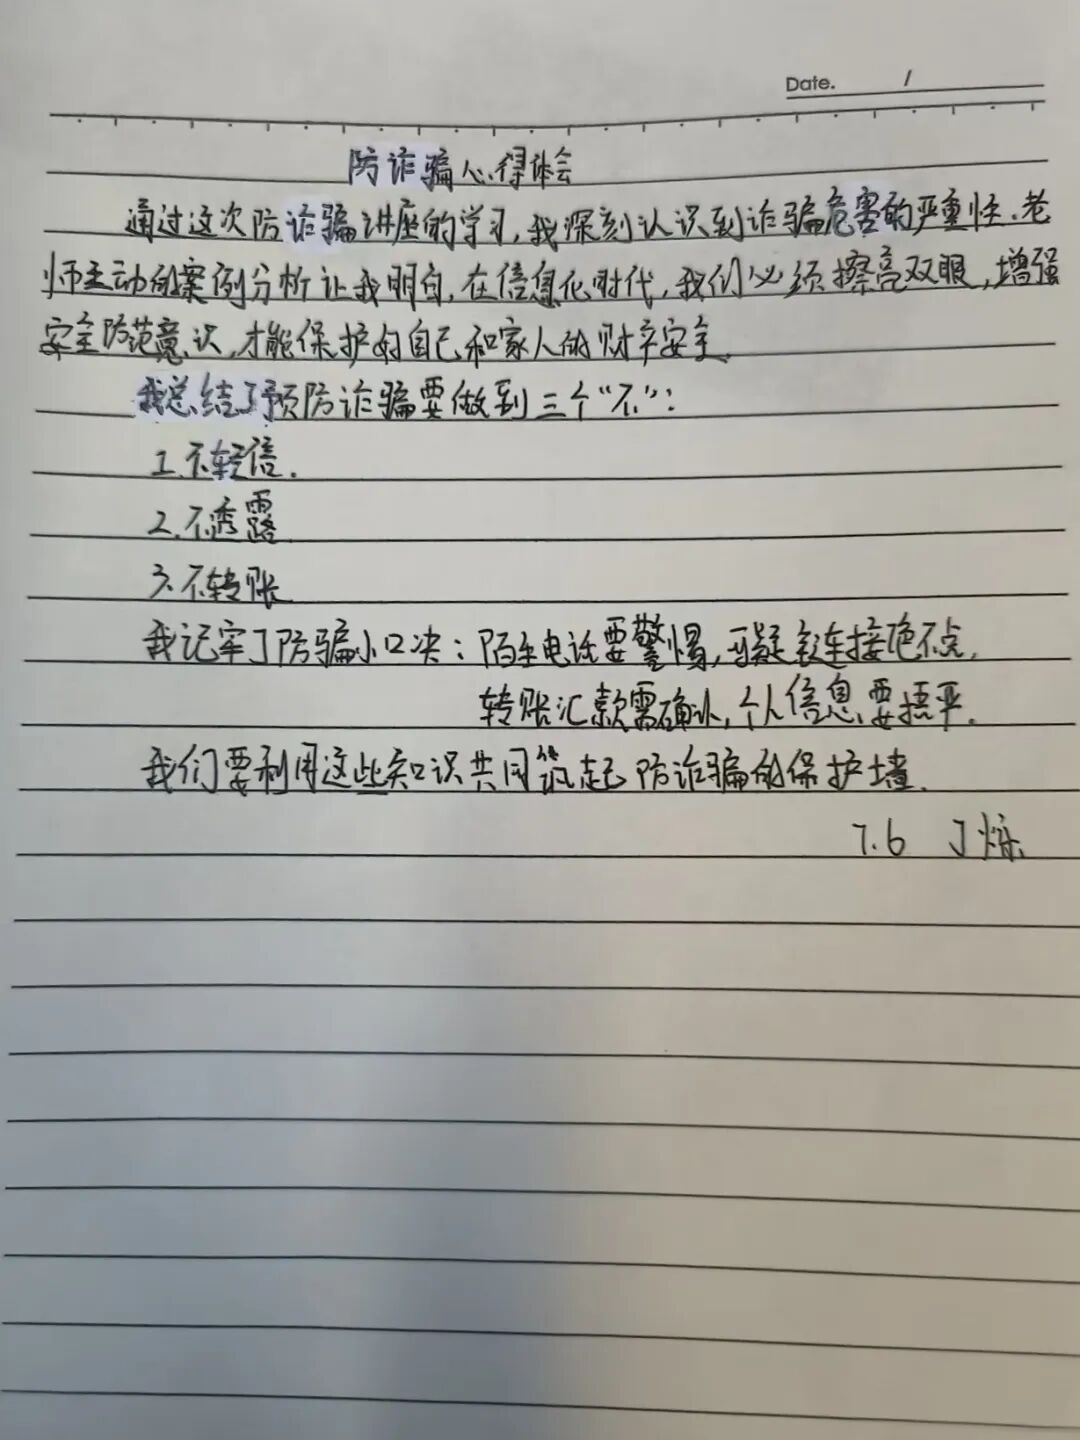 Date. /
防诈骗心得体会
通过这次防诈骗讲座的学习,我深刻认识到诈骗危害的严重性.老
师主动的案例分析让我明白,在信息化时代,我们必须擦亮双眼,增强
安全防范意识,才能保护好自己和家人的财产安全.
我总结了预防诈骗要做到三个“不”:
1.不轻信.
2.不透露
3.不转账
我记牢了防骗小口决:陌生电话要警惕,可疑链连接绝不点.
转账汇款需确认,个人信息要捂严.
我们要利用这些知识共同筑起防诈骗的保护墙.
7.6 丁烁